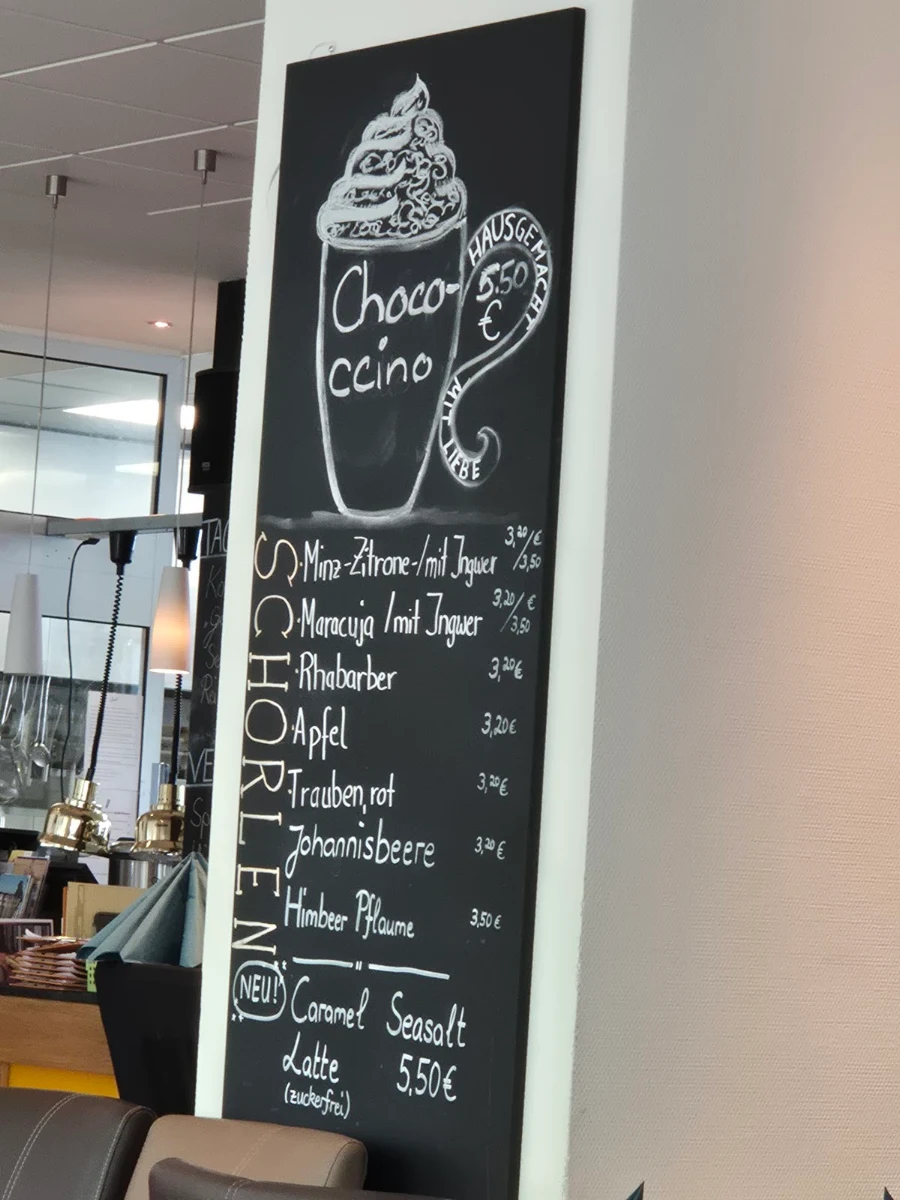 Choco-
ccino
HAUSGEMACHT
5.50
€
MIT LIEBE
SCHORLEN
·Minz-Zitrone-/mit Ingwer 3,20/3,50 €
·Maracuja /mit Ingwer 3,20/3,50 €
·Rhabarber 3,20€
·Apfel 3,20€
·Trauben, rot 3,20€
Johannisbeere 3,20€
Himbeer Pflaume 3,50€
NEU! Caramel Seasalt
Latte 5,50€
(zuckerfrei)